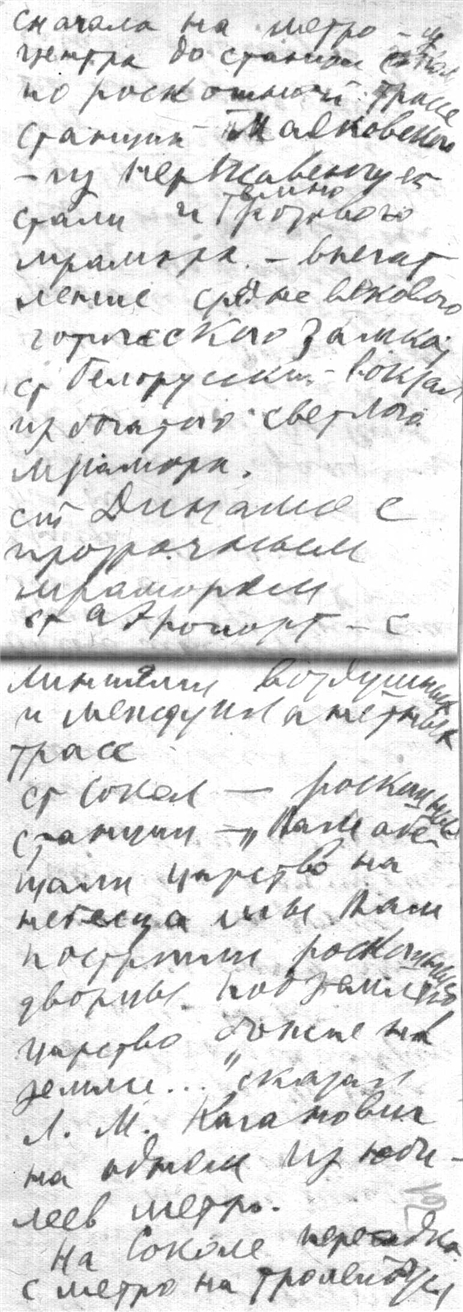 сначала на метро – из
центра до станции Сокол
по роскошной трассе
станции Маяковского
– из нержавеющей
стали и темно
грозового
мрамора – впечат
ление средневекового
готического замка,
ст Белорусский – вокзал
из богатого светлого
мрамора.
ст Динамо с
прозрачным
мрамором
ст аэропорт – с
линиями воздушных
и междупланетных
трасс
ст Сокол – роскошные
станции – „Вам обе-
щали царство на
небесца мы Вам
построили роскошные
дворцы под землею
царство божие на
земли..." сказал
Л. М. Каганович
на одном из юби-
леев метро.
На Соколе пересадка
с метро на троллейбус